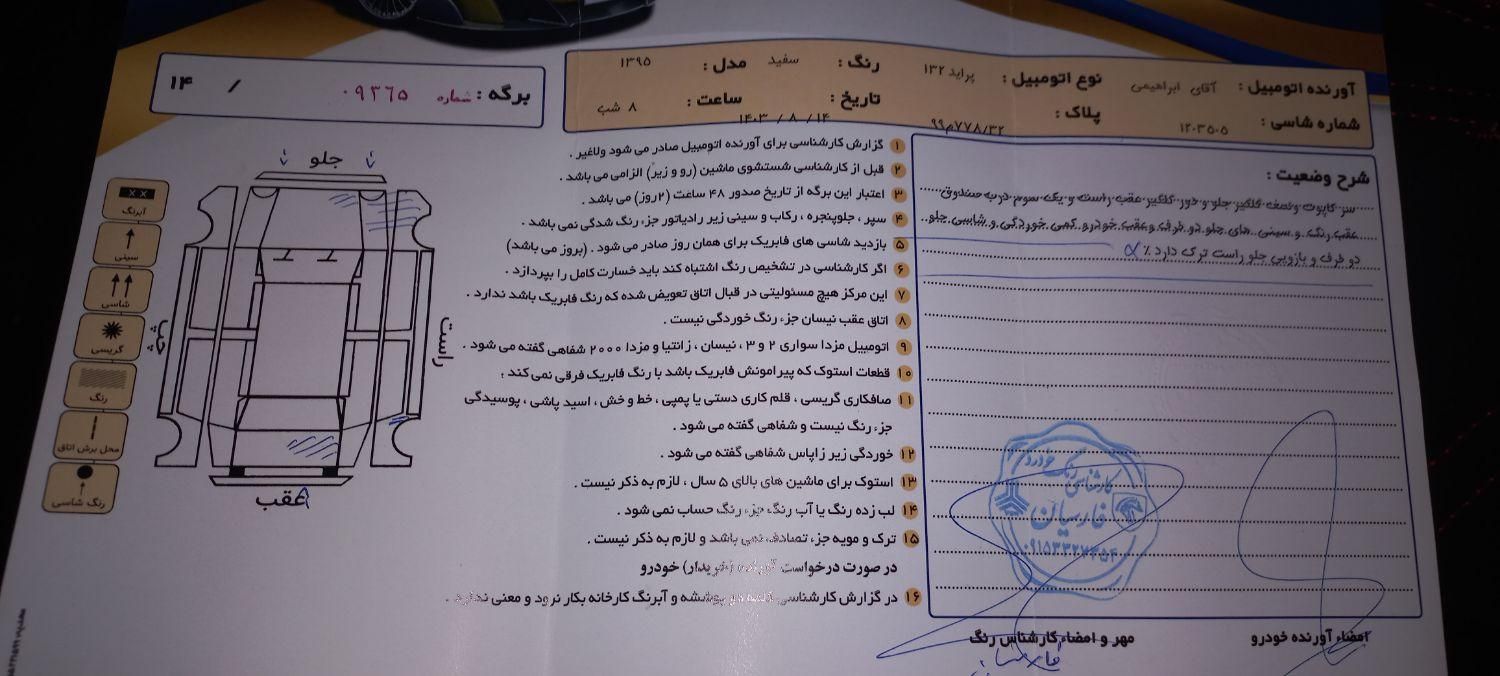 آورنده اتومبیل : آقای ابراهیمی نوع اتومبیل : پراید ۱۳۲ رنگ : سفید مدل : ۱۳۹۵
شماره شاسی : ۱۲۰۳۵۰۵ پلاک : ۹۹م۷۷۸/۳۲ تاریخ : ۱۴۰۳ / ۸ / ۱۴ ساعت : ۸ شب
برگه : شماره ۰۹۳۶۵ / ۱۴
شرح وضعیت :
سر کاپوت و نصف گلگیر جلو و دور گلگیر عقب راست و یک سوم درب صندوق
عقب رنگ و سینی های جلو دو طرف و عقب خودرو کمی خوردگی و شاسی جلو
دو طرف و بازویی جلو راست ترک دارد ٪
۱ گزارش کارشناسی برای آورنده اتومبیل صادر می شود ولاغیر .
۲ قبل از کارشناسی شستشوی ماشین (رو و زیر) الزامی می باشد .
۳ اعتبار این برگه از تاریخ صدور ۴۸ ساعت (۲روز) می باشد .
۴ سپر ، جلوپنجره ، رکاب و سینی زیر رادیاتور جزء رنگ شدگی نمی باشد .
۵ بازدید شاسی های فابریک برای همان روز صادر می شود . (بروز می باشد)
۶ اگر کارشناسی در تشخیص رنگ اشتباه کند باید خسارت کامل را بپردازد .
۷ این مرکز هیچ مسئولیتی در قبال اتاق تعویض شده که رنگ فابریک باشد ندارد .
۸ اتاق عقب نیسان جزء رنگ خوردگی نیست .
۹ اتومبیل مزدا سواری ۲ و ۳ ، نیسان ، زانتیا و مزدا ۲۰۰۰ شفاهی گفته می شود .
۱۰ قطعات استوک که پیرامونش فابریک باشد با رنگ فابریک فرقی نمی کند ؛
۱۱ صافکاری گریسی ، قلم کاری دستی یا پمپی ، خط و خش ، اسید پاشی ، پوسیدگی
جزء رنگ نیست و شفاهی گفته می شود .
۱۲ خوردگی زیر زاپاس شفاهی گفته می شود .
۱۳ استوک برای ماشین های بالای ۵ سال ، لازم به ذکر نیست .
۱۴ لب زده رنگ یا آب رنگ جزء رنگ حساب نمی شود .
۱۵ ترک و مویه جزء تصادف نمی باشد و لازم به ذکر نیست .
در صورت درخواست آورنده (خریدار) خودرو
۱۶ در گزارش کارشناسی کلمه دو پوششه و آبرنگ کارخانه بکار نرود و معنی ندارد .
جلو
راست
چپ
عقب
آبرنگ
سینی
شاسی
گریسی
رنگ
محل برش اتاق
رنگ شاسی
کارشناسی رنگ خودرو
فارسیان
۰۹۱۵۳۳۲۷۳۵۴
امضاء آورنده خودرو
مهر و امضاء کارشناس رنگ